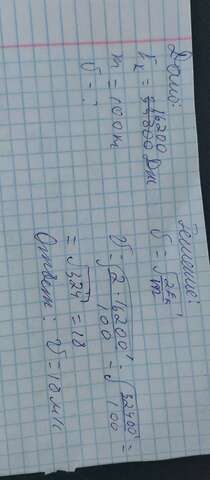 Дано:
Eк = 16200 Дж
m = 100 кг
v = ?
Решение:
v = √2Eк/m
v = √2·16200/100 = √32400/100 =
= √324 = 18
Ответ: v = 18 м/с